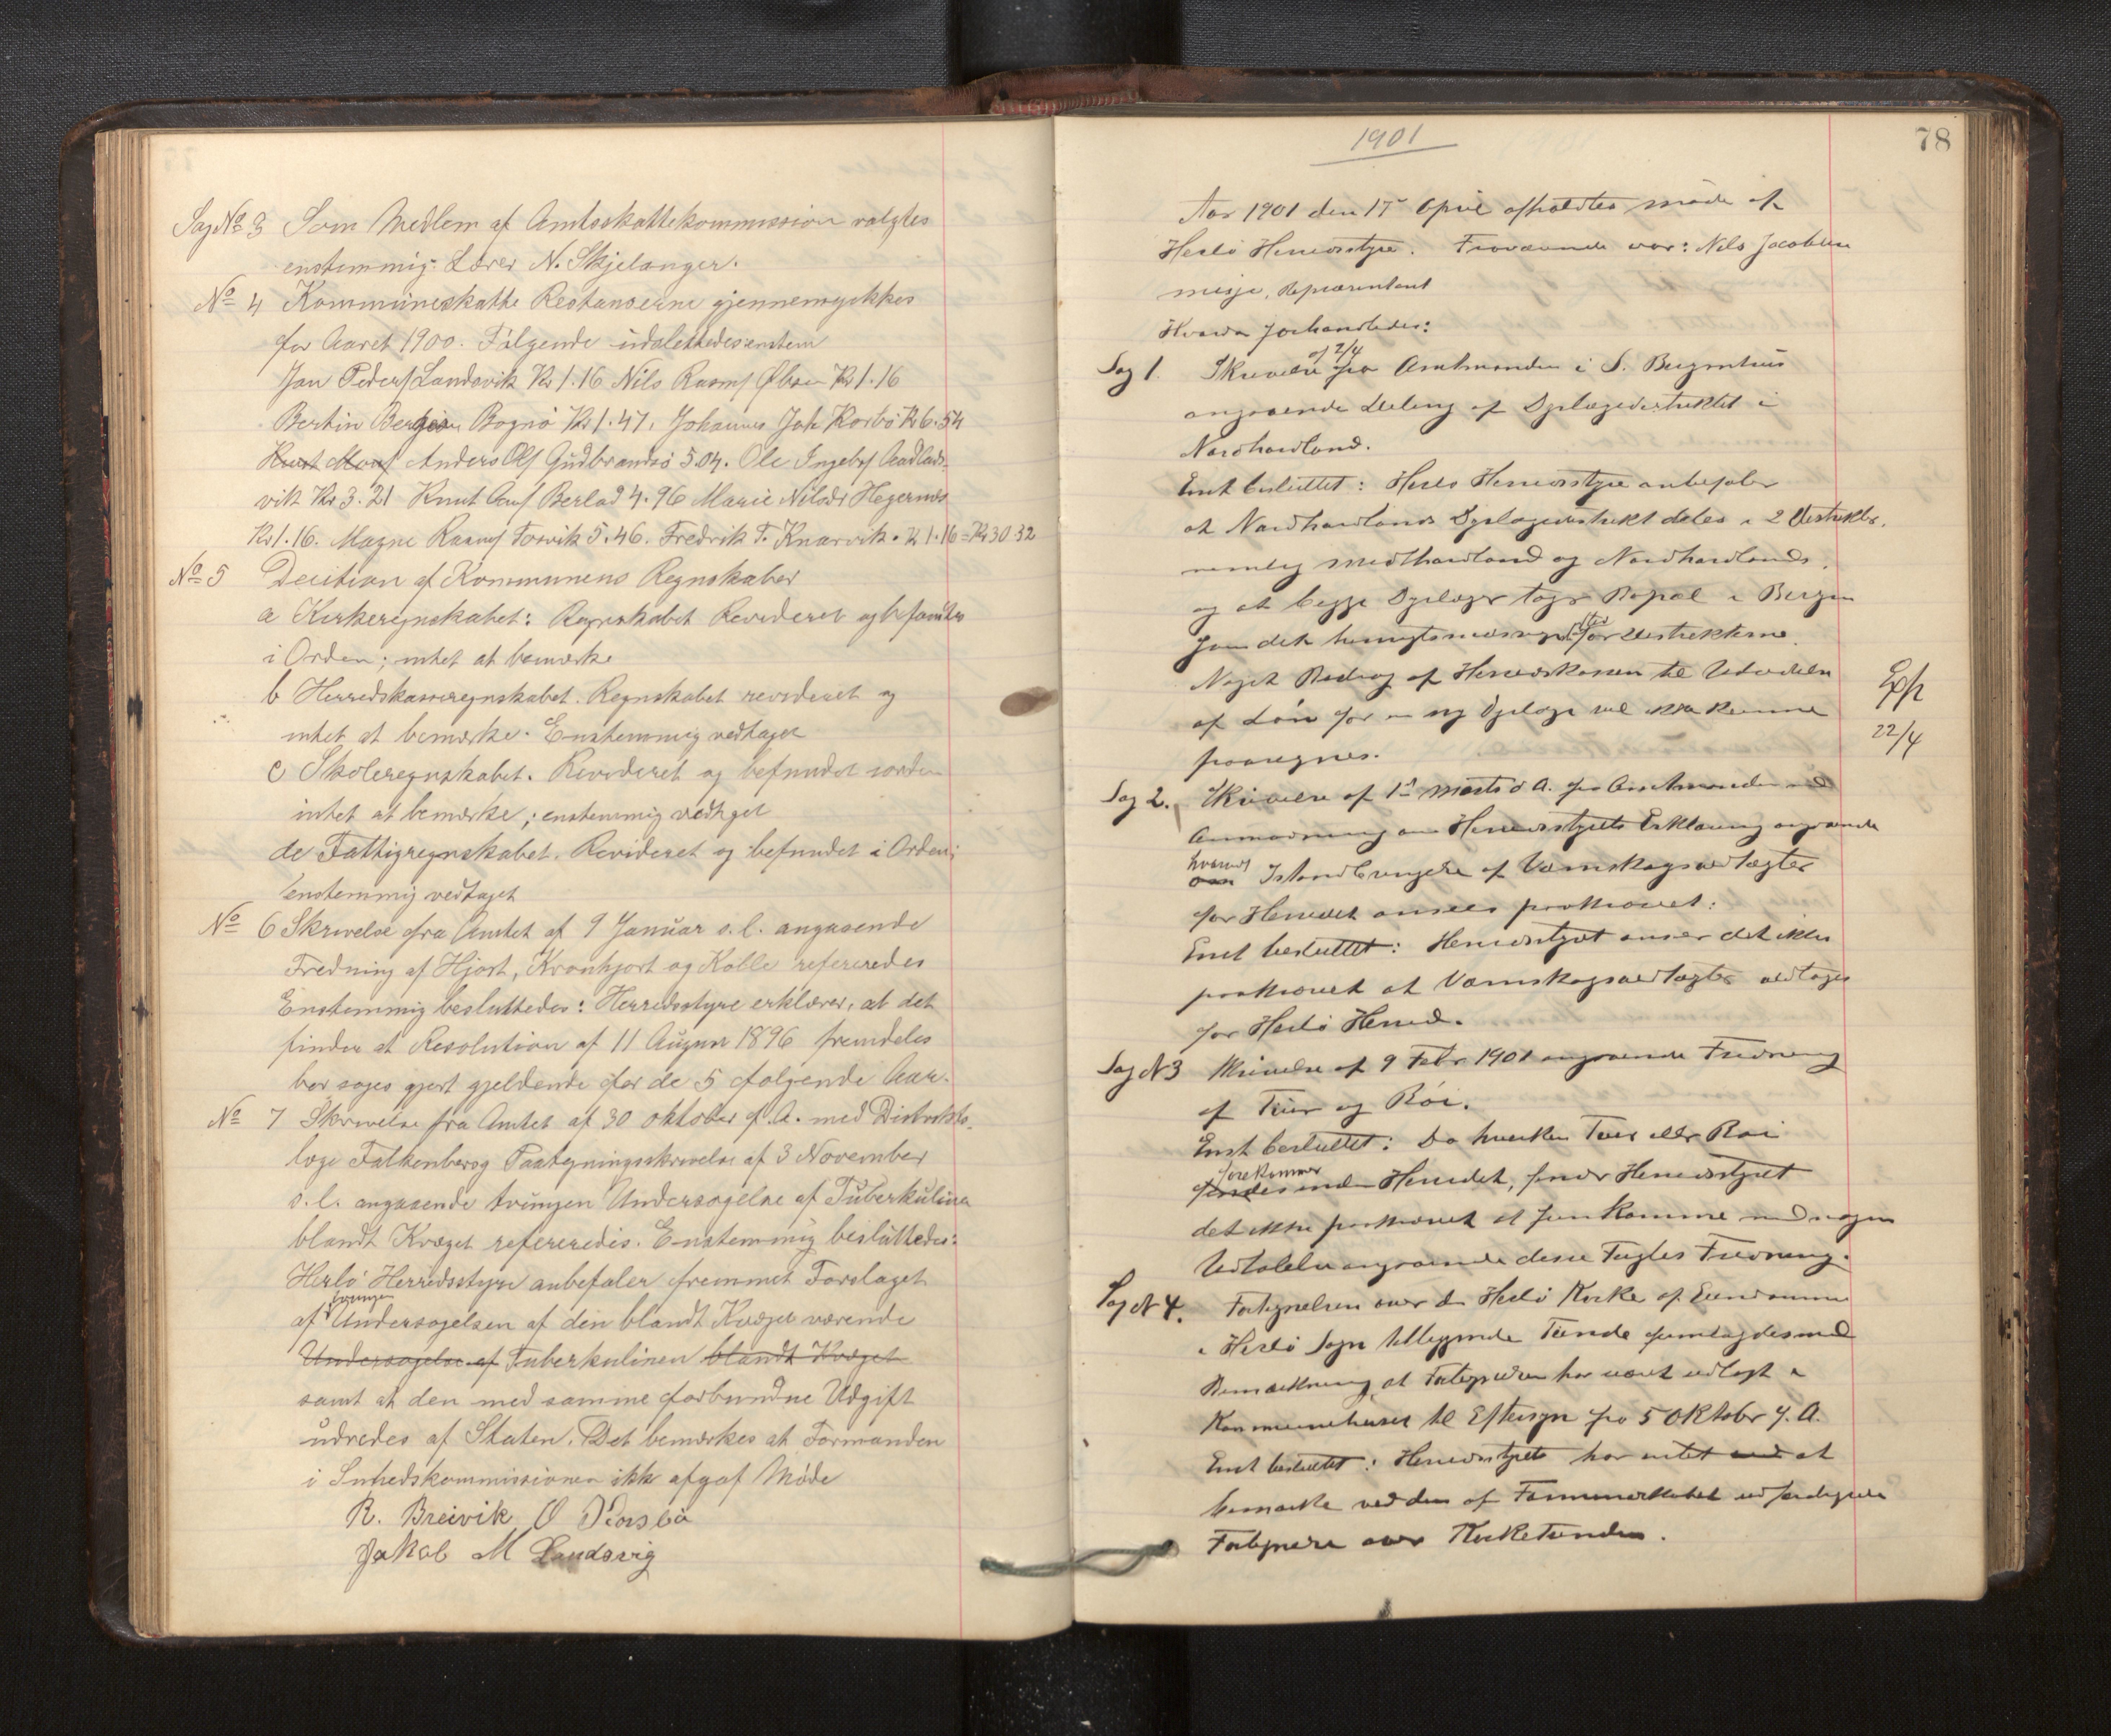 Sag No 3 Som Medlem af Amtsskattekommission valgtes
enstemmig: Lærer N. Skjelanger.
No 4 Kommuneskatte Restanserne gjennemgikkes
for Aaret 1900. Følgende udslettedes enstem
Jan Peders Landsvik Kr 1.16 Nils Rasms Øbsen Kr 1.16
Bertin Bognø Kr 1.47. Johannes Joh Rosbø Kr 6.54
Knut Mons Anders Ols Gudbrandsø 5.04. Ole Ingebr Aadlads-
vik Kr 3.21 Knut Berlad 4.96 Marie Nilsdr Hegernes
Kr 1.16. Magne Rasms Fosvik 5.46. Fredrik T. Knarvik. Kr 1.16 = Kr 30.32
No 5 Decition af Kommunens Regnskaber
a Kirkeregnskabet: Regnskabet Revideret og befandtes
i Orden; intet at bemærke
b Herredskasseregnskabet. Regnskabet revideret og
intet at bemærke. Enstemmig vedtaget
c Skoleregnskabet. Revideret og befundet iorden
intet at bemærke; enstemmig vedtaget
de Fattigregnskabet. Revideret og befundet i Orden;
enstemmig vedtaget
No 6 Skrivelse fra Amtet af 9 Januar s.l. angaaende
Fredning af Hjort, Kronhjort og Kolle refereredes
Enstemmig besluttedes: Herredsstyre erklærer, at det
finder at Resolution af 11 August 1896 fremdeles
bør søges gjort gjeldende for de 5 følgende Aar.
No 7 Skrivelse fra Amtet af 30 oktober f.A. med Distrikts-
læge Falkenberog Paategningsskrivelse af 3 November
s.l. angaaende tvungen Undersøgelse af Tuberkulina
blandt Kvæget refereredes. Enstemmig besluttedes:
Herlø Herredsstyre anbefaler fremmet Forslaget
tvungen
af Undersøgelsen af den blandt Kvæget værende
Undersøgelse af Tuberkulinen blandt Kvæget
samt at den med samme forbundne Udgift
udredes af Staten. Det bemærkes at Formanden
i Sunhedskommissionen ikke afgaf Møde
R. Breivik O Rosbø
Jakob M Landsvig
1901
78
Aar 1901 den 17de April afholdtes møde af
Herlø Herredsstyre. Fraværende var: Nils Jacobsen
misje, Repræsentant
Hvorda forhandledes:
af 2/4
Sag 1. Skrivelse fra Amtmanden i S. Bergenhus
angaaende Deling af Dyrlægedistriktet i
Nordhordland.
Enst besluttet: Herlø Herredsstyre anbefaler
at Nordhordlands Dyrlægedistrikt deles i 2 Distrikter.
nemlig Midthordland og Nordhordlands.
og at begge Dyrlæger tager Bopæl i Bergen
som det hensigtsmæssige Sted for Distrikterne.
Noget Bidrag af Herredskassen til Udredelse
af Løn for en ny Dyrlæge vil ikke kunne
paaregnes.
Exp
22/4
Sag 2. Skrivelse af 1ste Marts d. A. fra Amtmanden med
Anmodning om Herredsstyrets Erklæring angaaende
hvorvidt
om Istandbringelse af Værnskogsvedtægter
for Herredet ansees paakrævet:
Enst besluttet: Herredsstyret anser det ikke
paakrævet at Værnskogsvedtægter vedtages
for Herlø Herred.
Sag N 3 Skrivelse af 9 Febr 1901 angaaende Fredning
af Tiur og Röi.
Enst besluttet: Da hverken Tiur eller Röi
forekommer
findes inden Herredet, finder Herredsstyret
det ikke paakrævet at fremkomme med nogen
Udtalelse angaaende disse Fugles Fredning.
Sag N 4. Fortegnelsen over de Herlø Kirke af Eiendomme
i Herlø Sogn tilliggende Tiende fremlagdes med
Bemærkning at Fortegnelsen har været udlagt i
Kommunehuset til Eftersyn fra 5 Oktober f. A.
Enst besluttet: Herredsstyret har intet ved at
bemærke ved den af Formandskabet udfærdigede
Fortegnelse over Kirketienden.